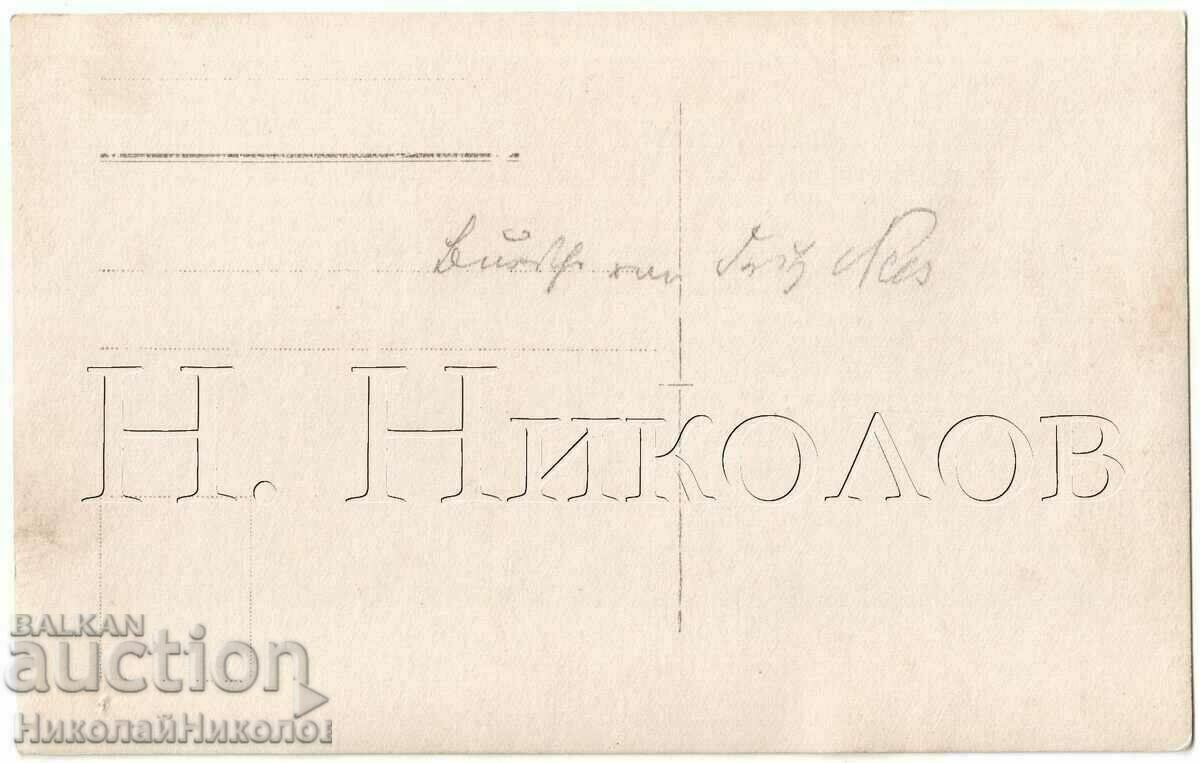 Bursche von Fritz Nees
Н. Николов
BALKAN
auction
НиколайНиколов